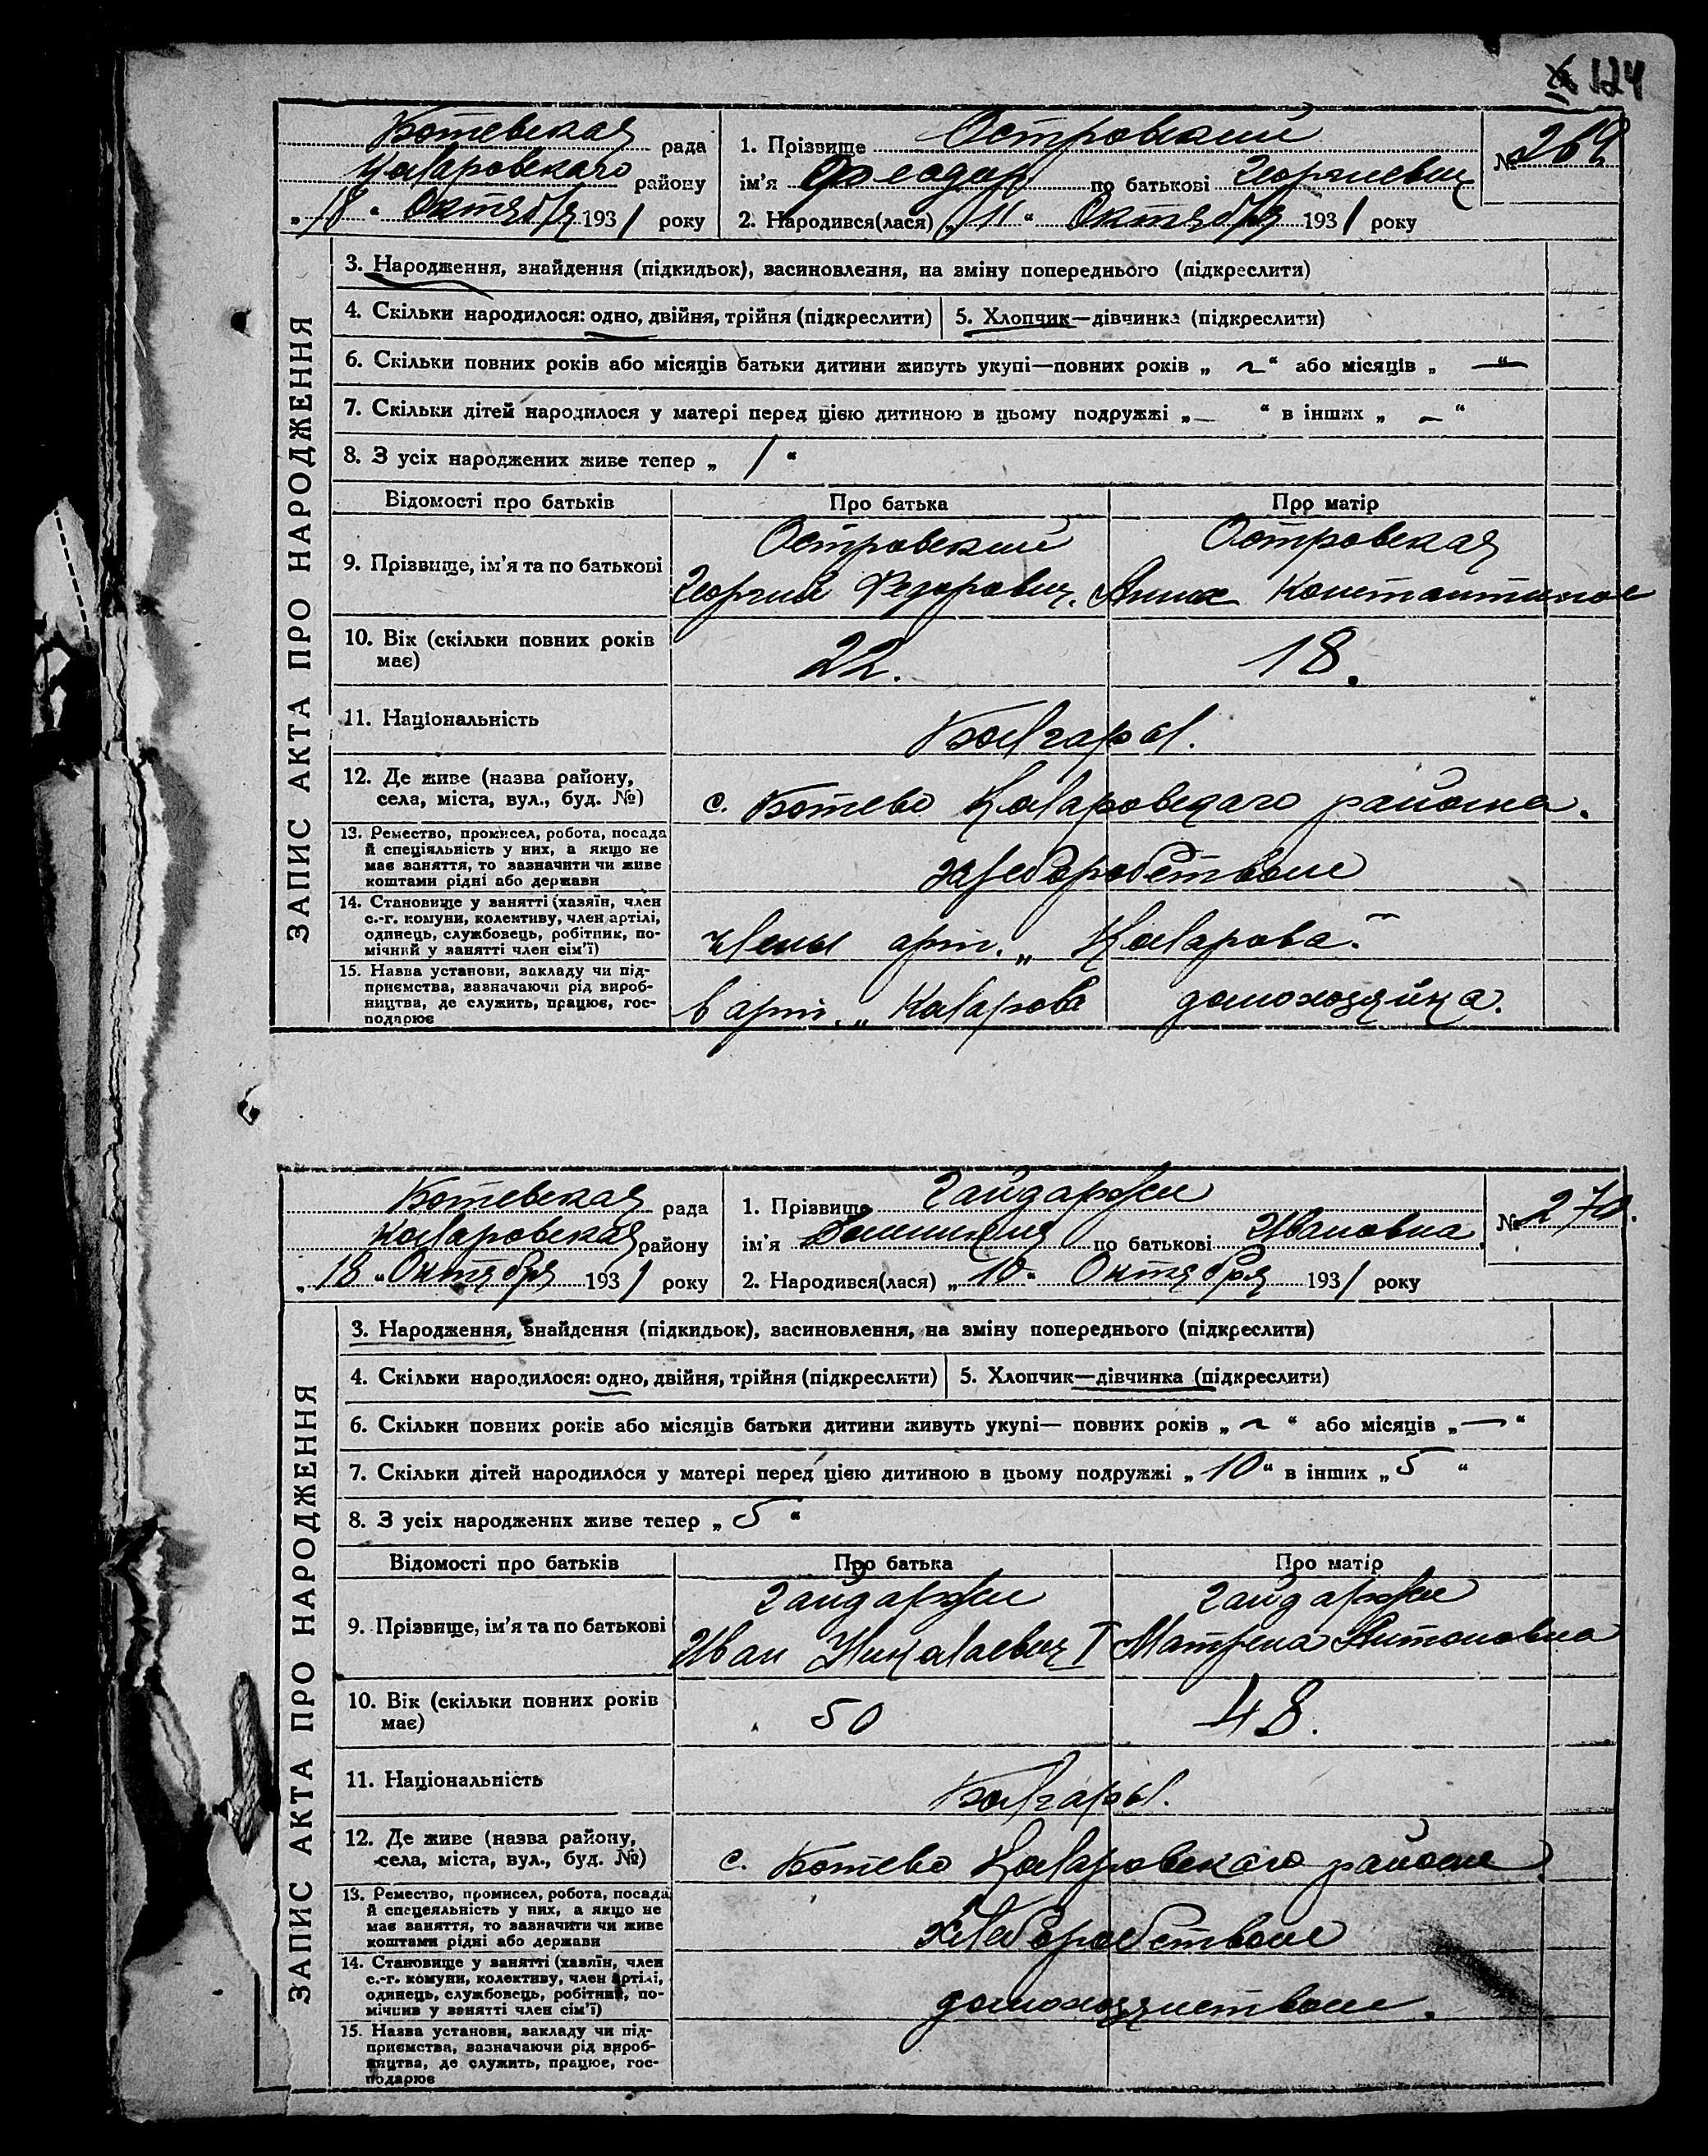 124
Ботевская рада
Коларовскаго району
„18“ Октября 1931 року
1. Прізвище Островский
ім'я Феодор по батькові Георгиевич
2. Народився(лася) „11“ Октября 1931 року
№ 269
ЗАПИС АКТА ПРО НАРОДЖЕННЯ
3. Народження, знайдення (підкидьок), засиновлення, на зміну попереднього (підкреслити)
4. Скільки народилося: одно, двійня, трійня (підкреслити)
5. Хлопчик—дівчинка (підкреслити)
6. Скільки повних років або місяців батьки дитини живуть укупі—повних років „ ~ “ або місяців „ — “
7. Скільки дітей народилося у матері перед цією дитиною в цьому подружжі „ — “ в інших „ — “
8. З усіх народжених живе тепер „ 1 “
Відомості про батьків Про батька Про матір
9. Прізвище, ім'я та по батькові
Островский
Георгий Федорович.
Островская
Анна
10. Вік (скільки повних років має)
22. 18.
11. Національність
Болгары.
12. Де живе (назва району, села, міста, вул., буд. №)
с. Ботево Коларовскаго района.
13. Ремество, промисел, робота, посада
й спеціяльність у них, а якщо не
має заняття, то зазначити чи живе
коштами рідні або держави
хлеборобством
14. Становище у занятті (хазяїн, член
с.-г. комуни, колективу, член артілі,
одинець, службовець, робітник, по-
мічний у занятті член сім'ї)
члены арт. „Коларова“
15. Назва установи, закладу чи під-
приємства, зазначаючи рід вироб-
ництва, де служить, працює, гос-
подарює
в арт. „Коларова домохозяйка.
Ботевская рада
Коларовская району
„18“ Октября 1931 року
1. Прізвище Гайдаржи
ім'я по батькові Ивановна
2. Народився(лася) „10“ Октября 1931 року
№ 270.
ЗАПИС АКТА ПРО НАРОДЖЕННЯ
3. Народження, знайдення (підкидьок), засиновлення, на зміну попереднього (підкреслити)
4. Скільки народилося: одно, двійня, трійня (підкреслити)
5. Хлопчик—дівчинка (підкреслити)
6. Скільки повних років або місяців батьки дитини живуть укупі— повних років „ ~ “ або місяців „ — “
7. Скільки дітей народилося у матері перед цією дитиною в цьому подружжі „ 10 “ в інших „ 5 “
8. З усіх народжених живе тепер „ 5 “
Відомості про батьків Про батька Про матір
9. Прізвище, ім'я та по батькові
Гайдаржи
Иван Николаевич I
Гайдаржи
Матрена Антоновна
10. Вік (скільки повних років має)
50 48.
11. Національність
Болгары.
12. Де живе (назва району, села, міста, вул., буд. №)
с. Ботево Коларовскаго района
13. Ремество, промисел, робота, посада
й спецеяльність у них, а якщо не
має заняття, то зазначити чи живе
коштами рідні або держави
хлеборобством
14. Становище у занятті (хазяїн, член
с.-г. комуни, колективу, член артілі,
одинець, службовець, робітник, по-
мічний у занятті член сім'ї)
домохозяйством.
15. Назва установи, закладу чи під-
приємства, зазначаючи рід вироб-
ництва, де служить, працює, гос-
подарює